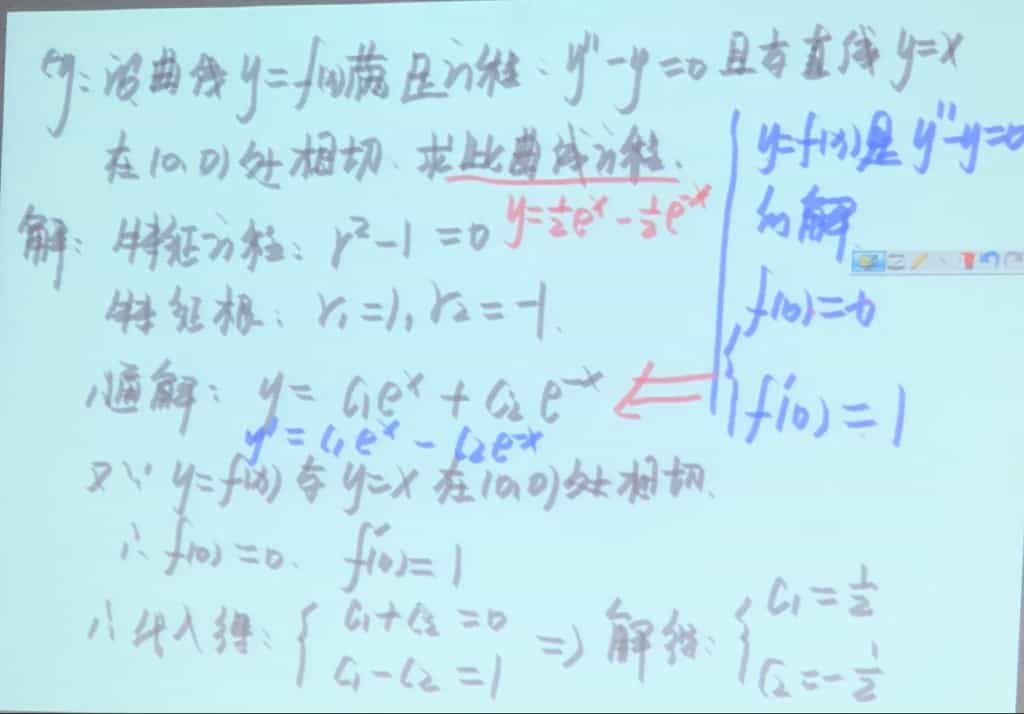 eg: 设曲线 y=f(x)满足方程: y''-y=0 且与直线 y=x
在(0,0)处相切. 求此曲线方程.
y=½eˣ-½e⁻ˣ
解: 特征方程: r²-1=0
特征根: r₁=1, r₂=-1.
∴通解: y=C₁eˣ+C₂e⁻ˣ
y'=C₁eˣ-C₂e⁻ˣ
又∵ y=f(x)与y=x在(0,0)处相切.
∴ f(0)=0. f'(0)=1
∴代入得: { C₁+C₂=0 => 解得: { C₁=½
C₁-C₂=1 C₂=-½
y=f(x)是 y''-y=0
的解
f(0)=0
f'(0)=1